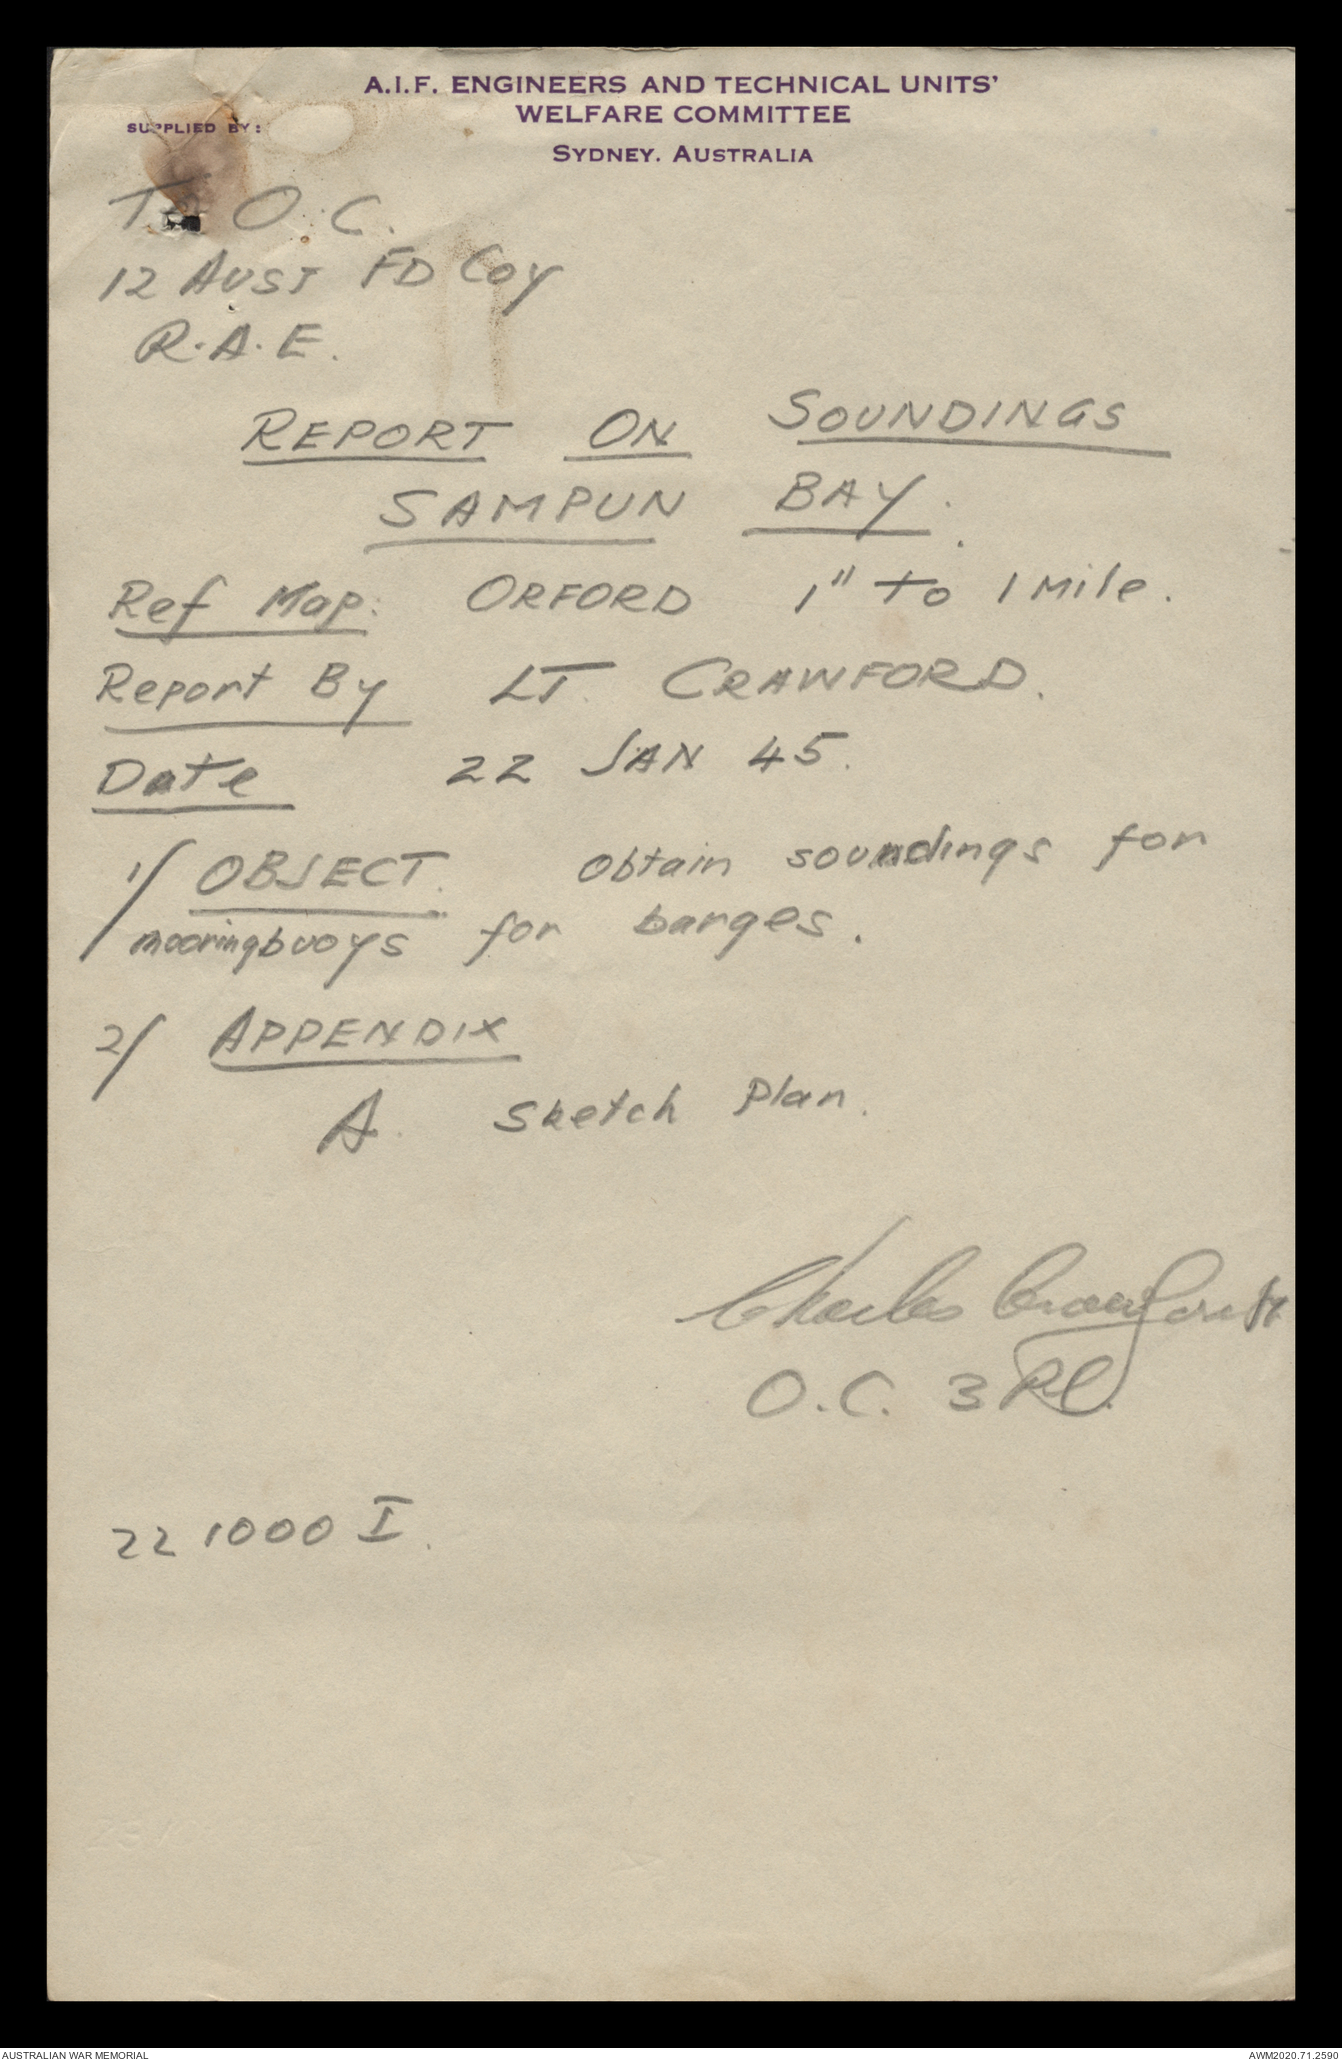 A.I.F. ENGINEERS AND TECHNICAL UNITS'
WELFARE COMMITTEE
SUPPLIED BY:
SYDNEY. AUSTRALIA
To O.C.
12 AUST FD Coy
R.A.E.
REPORT ON SOUNDINGS
SAMPUN BAY.
Ref Map: ORFORD 1" to 1 Mile.
Report By LT. CRAWFORD.
Date 22 JAN 45.
1/ OBJECT. Obtain soundings for
mooring buoys for barges.
2/ APPENDIX
A. Sketch Plan.
Charles Crawford Lt
O.C. 3 Pl.
22 1000 I.
AUSTRALIAN WAR MEMORIAL
AWM2020.71.2590